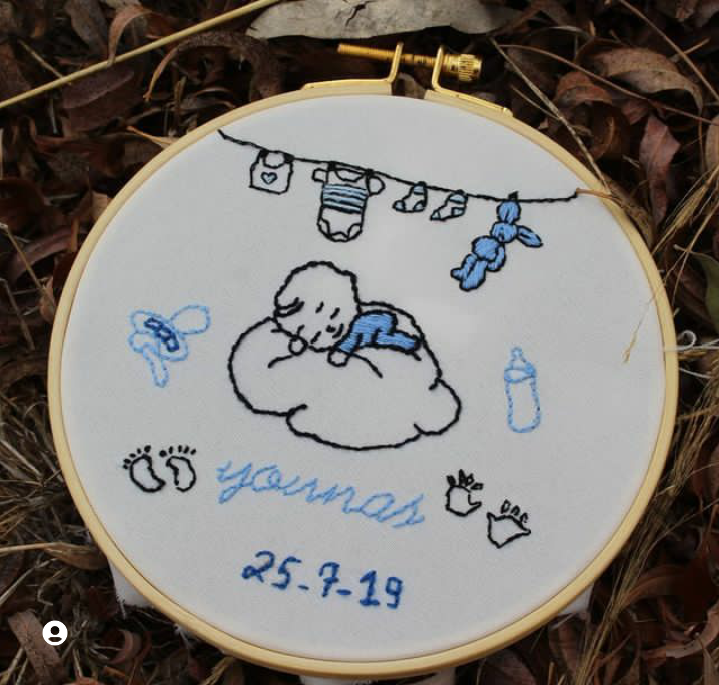 younas
25-7-19